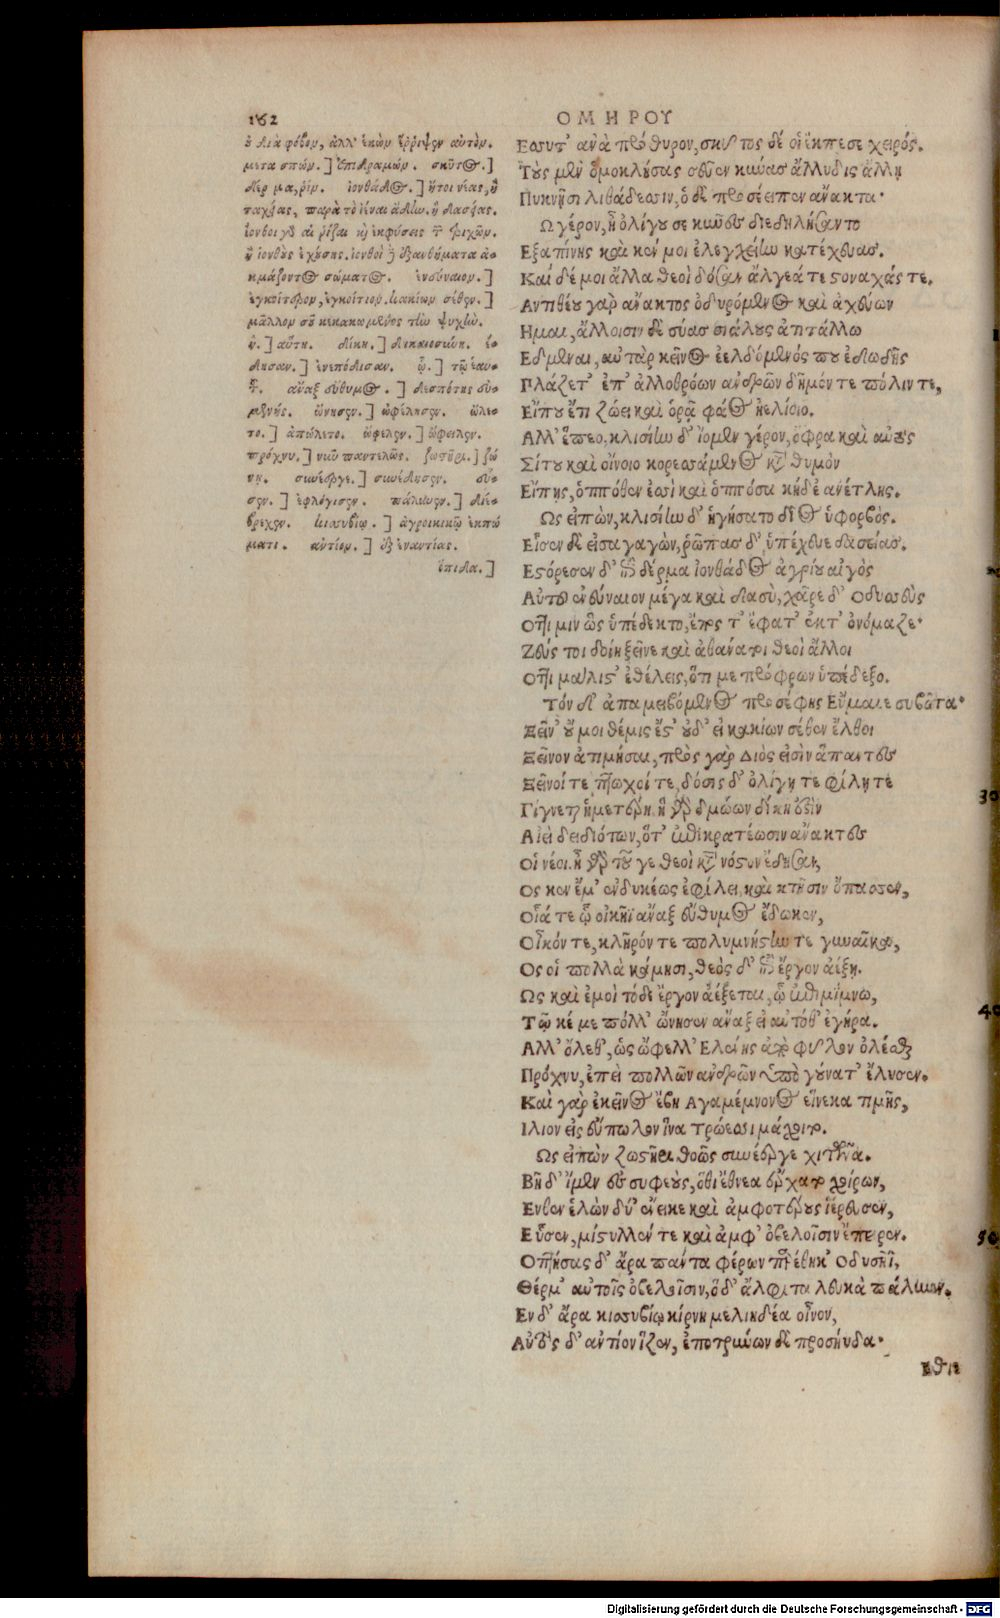 162
ΟΜΗΡΟΥ
ὀ διὰ φόβον, ἀλλ' ἑκὼν ἔρριψεν αὐτὸν.
μετασπών.] ἐπιδραμών. σκῦτος.]
δέρμα, ῥίν. ἰονθάδος.] ἤτοι νέας, ἢ
παχείας, παρὰ τὸ ἰέναι ἄδην. ἢ δασείας.
ἴονθοι γὸ αἱ ῥίζαι καὶ ἐκφύσεις τῶν τριχῶν.
ἢ ἰονθοὺς ἐχούσης. ἰονθοὶ δὲ ἐξανθήματα ἀ-
κμάζοντος σώματος. ἐνεύναιον.]
ἐγκοίτερον, ἐγκοίτιον. κακίων σέθεν.]
μᾶλλον σοῦ κεκακωμένος τὴν ψυχὴν.
ἡ.] αὕτη. δίκη.] δικαιοσύνη. ἔ-
δησαν.] ἐνεπόδισαν. ᾧ.] τῷ ἑαυ-
τοῦ. ἄναξ εὔθυμος.] δεσπότης εὐ-
μενής. ὤνησεν.] ὠφέλησεν. ὤλε-
το.] ἀπώλετο. ὤφελεν.] ὤφειλεν.
πρόχνυ.] νῦν παντελῶς. ζωστῆρι.] ζώ
νη. συνέεργε.] συνέδησεν. εὗ-
σεν.] ἐφλόγισεν. πάλυνεν.] διέ-
βρεχεν. κισσυβίῳ.] ἀγροικικῷ ἐκπώ
ματι. αὐτίον.] ἐξ ἐναντίας.
ἐπιδα.]
Εσσυτ' ἀνὰ πρόθυρον, σκῦτος δέ οἱ ἔκπεσε χειρός.
Τοὺς μὲν ὁμοκλήσας σεῦεν κύνας ἄλλυδις ἄλλῃ
Πυκνῇσι λιθάδεσσιν, ὁ δὲ προσέειπεν ἄνακτα·
Ω γέρον, ἦ ὀλίγου σε κύνες διεδηλήσαντο
Εξαπίνης καὶ κέν μοι ἐλεγχείην κατέχευας.
Καὶ δέ μοι ἄλλα θεοὶ δόσαν ἄλγεά τε στοναχάς τε.
Αντιθέου γὰρ ἄνακτος ὀδυρόμενος καὶ ἀχεύων
Ημαι, ἄλλοισιν δὲ σύας σιάλους ἀτιτάλλω
Εδμεναι, αὐτὰρ κεῖνος ἐελδόμενός που ἐδωδῆς
Πλάζετ' ἐπ' ἀλλοθρόων ἀνδρῶν δῆμόν τε πόλιν τε,
Εἴπου ἔτι ζώει καὶ ὁρᾷ φάος ἠελίοιο.
Αλλ' ἕπεο, κλισίην δ' ἴομεν γέρον, ὄφρα καὶ αὐτὸς
Σίτου καὶ οἴνοιο κορεσσάμενος κατὰ θυμὸν
Εἴπῃς, ὁππόθεν ἐσσὶ καὶ ὁππόσα κήδε' ἀνέτλης.
Ως εἰπὼν, κλισίην δ' ἡγήσατο δῖος ὑφορβὸς.
Εἷσεν δὲ εἰσαγαγὼν, ῥῶπας δ' ὑπέχευε δασείας.
Εστόρεσεν δ' ἐπὶ δέρμα ἰονθάδος ἀγρίου αἰγὸς
Αὐτοῦ ἐνεύναιον μέγα καὶ δασὺ, χαῖρε δ' Οδυσσεὺς
Οττι μιν ὣς ὑπέδεκτο, ἔπος τ' ἔφατ' ἔκτ' ὀνόμαζε·
Ζεύς τοι δοίη ξεῖνε καὶ ἀθάνατοι θεοὶ ἄλλοι
Οττι μάλιστ' ἐθέλεις, ὅτι με πρόφρων ὑπέδεξο.
Τόν δ' ἀπαμειβόμενος προσέφης Εὔμαιε συβῶτα·
Ξεῖν' οὔ μοι θέμις ἔστ' οὐδ' εἰ κακίων σέθεν ἔλθοι
Ξεῖνον ἀτιμῆσαι, πρὸς γὰρ Διὸς εἰσὶν ἅπαντες
Ξεῖνοί τε πτωχοί τε, δόσις δ' ὀλίγη τε φίλη τε
Γίγνεται ἡμετέρη. ἡ γὰρ δμώων δίκη ἐστὶν
Αἰεὶ δειδιότων, ὅτ' ἐπικρατέωσιν ἄνακτες
Οἱ νέοι. ἦ γὰρ τοῦ γε θεοὶ κατὰ νόστον ἔδησαν,
Ος κεν ἔμ' ἐνδυκέως ἐφίλει, καὶ κτῆσιν ὄπασσεν,
Οἷά τε ᾧ οἰκῆϊ ἄναξ εὔθυμος ἔδωκεν,
Οἶκόν τε, κλῆρόν τε πολυμνήστην τε γυναῖκα,
Ος οἱ πολλὰ κάμησι, θεὸς δ' ἐπὶ ἔργον ἀέξῃ.
Ως καὶ ἐμοὶ τόδε ἔργον ἀέξεται, ᾧ ἐπιμίμνω,
Τῷ κέ με πόλλ' ὤνησεν ἄναξ εἰ αὐτόθ' ἐγήρα.
Αλλ' ὄλεθ', ὡς ὤφελλ' Ελένης ἀπὸ φῦλον ὀλέσθαι
Πρόχνυ, ἐπεὶ πολλῶν ἀνδρῶν ὑπὸ γούνατ' ἔλυσεν.
Καὶ γὰρ ἐκεῖνος ἔβη Αγαμέμνονος εἵνεκα τιμῆς,
Ιλιον εἰς εὔπωλον ἵνα τρώεσσι μάχοιτο.
Ως εἰπὼν ζωστῆρι θοῶς συνέεργε χιτῶνα.
Βῆ δ' ἴμεν ἐς συφεοὺς, ὅθι ἔθνεα ἔρχατο χοίρων,
Ενθεν ἑλὼν δύ' ἔνεικε καὶ ἀμφοτέρους ἱέρευσεν,
Εὗσεν, μίστυλλέν τε καὶ ἀμφ' ὀβελοῖσιν ἔπειρεν.
Οπτήσας δ' ἄρα πάντα φέρων παρέθηκ' Οδυσῆϊ,
Θέρμ' αὐτοῖς ὀβελοῖσιν, ὁ δ' ἄλφιτα λευκὰ πάλυνεν.
Εν δ' ἄρα κισσυβίῳ κίρνη μελιηδέα οἶνον,
Αὐτὸς δ' ἀντίον ἷζεν, ἐποτρύνων δὲ προσηύδα·
Εσθιε
30
40
50
Digitalisierung gefördert durch die Deutsche Forschungsgemeinschaft - DFG